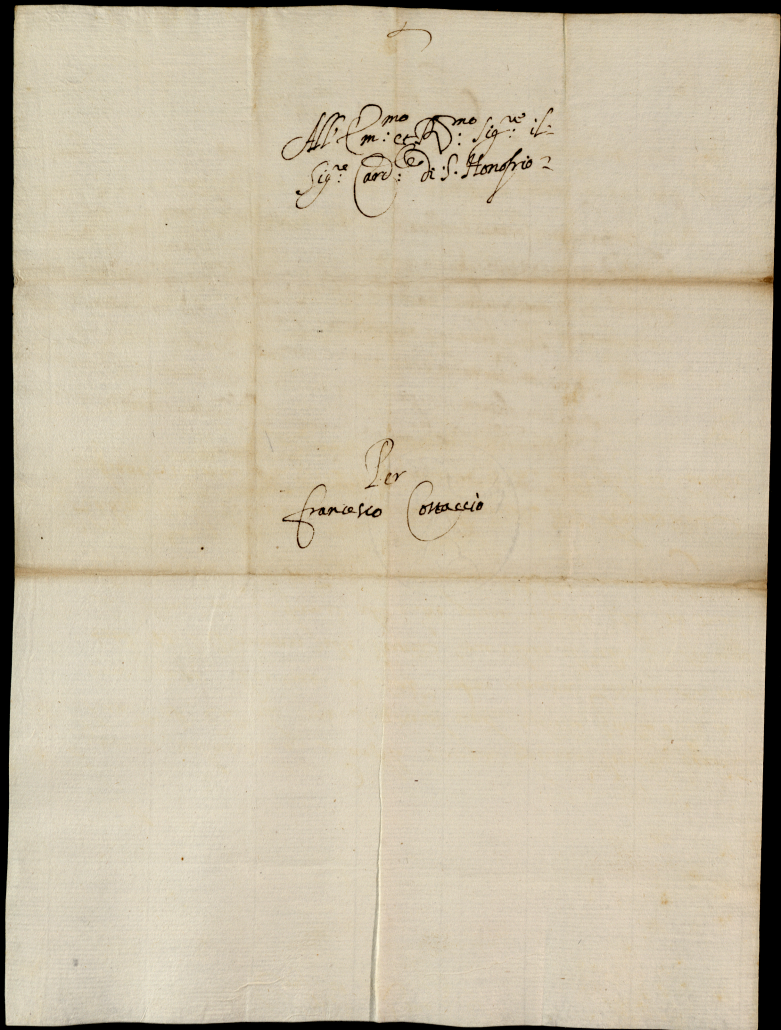 All' Em:mo et R:mo Sig:re il
Sig:re Card:le di S. Honofrio
Per
Francesco Cottaccio